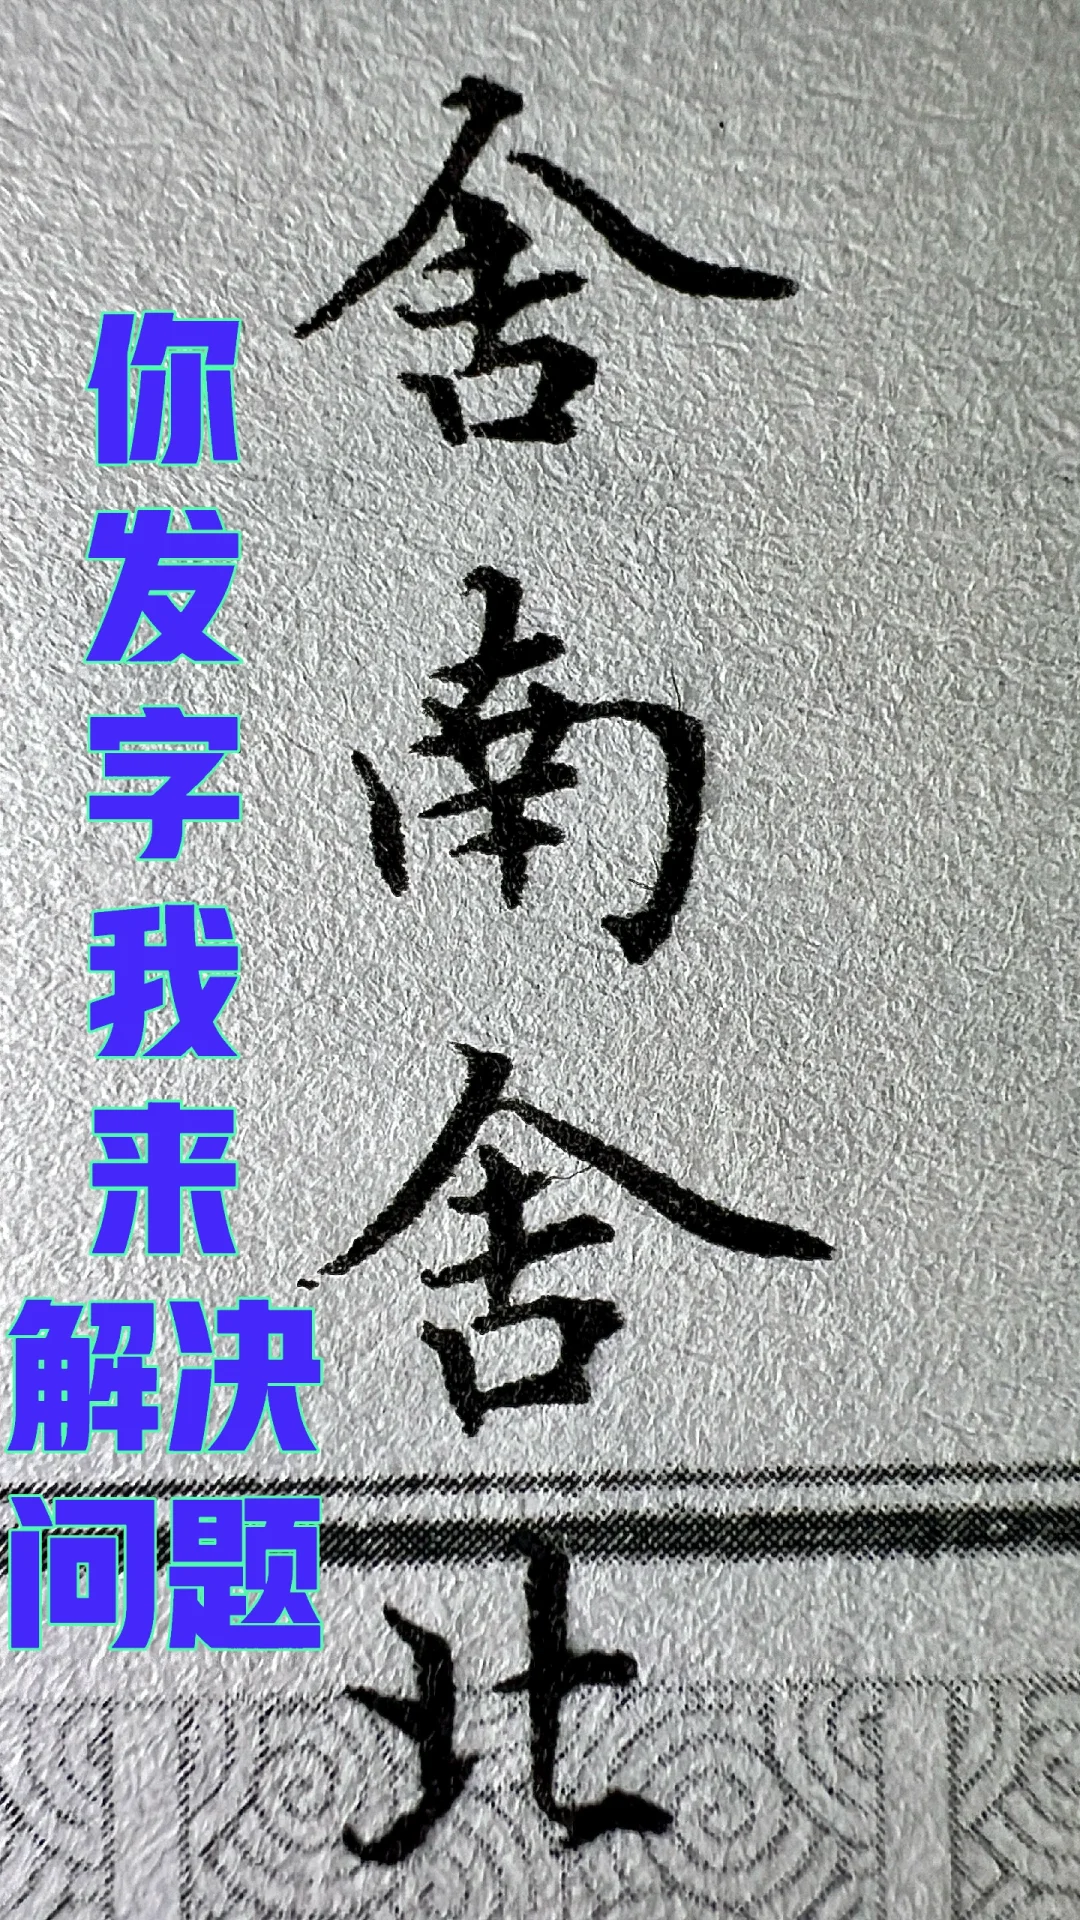 舍南舍北
你
发
字
我
来
解决
问题